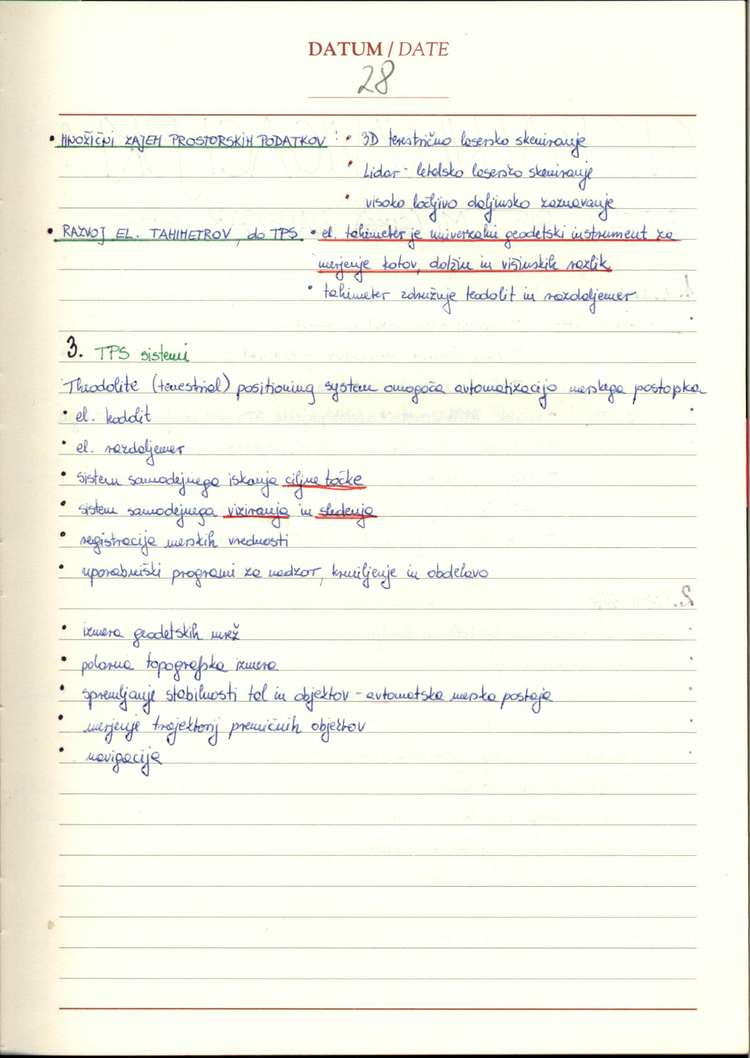 DATUM / DATE
28
• MNOŽIČNI ZAJEM PROSTORSKIH PODATKOV : • 3D terestrično lasersko skeniranje
• Lidar - letalsko lasersko skeniranje
• visoko ločljivo daljinsko zaznavanje
• RAZVOJ EL. TAHIMETROV, do TPS • el. tahimeter je univerzalni geodetski instrument za
merjenje kotov, dolžin in višinskih razlik
• tahimeter združuje teodolit in razdaljemer
3. TPS sistemi
Theodolite (terrestrial) positioning system omogoča avtomatizacijo merskega postopka
• el. teodolit
• el. razdaljemer
• sistem samodejnega iskanja ciljne točke
• sistem samodejnega viziranja in sledenja
• registracija merskih vrednosti
• uporabniški programi za nadzor, krmiljenje in obdelavo
• izmera geodetskih mrež
• polarna topografska izmera
• spremljanje stabilnosti tal in objektov - avtomatska merska postaja
• merjenje trajektorij premičnih objektov
• navigacija